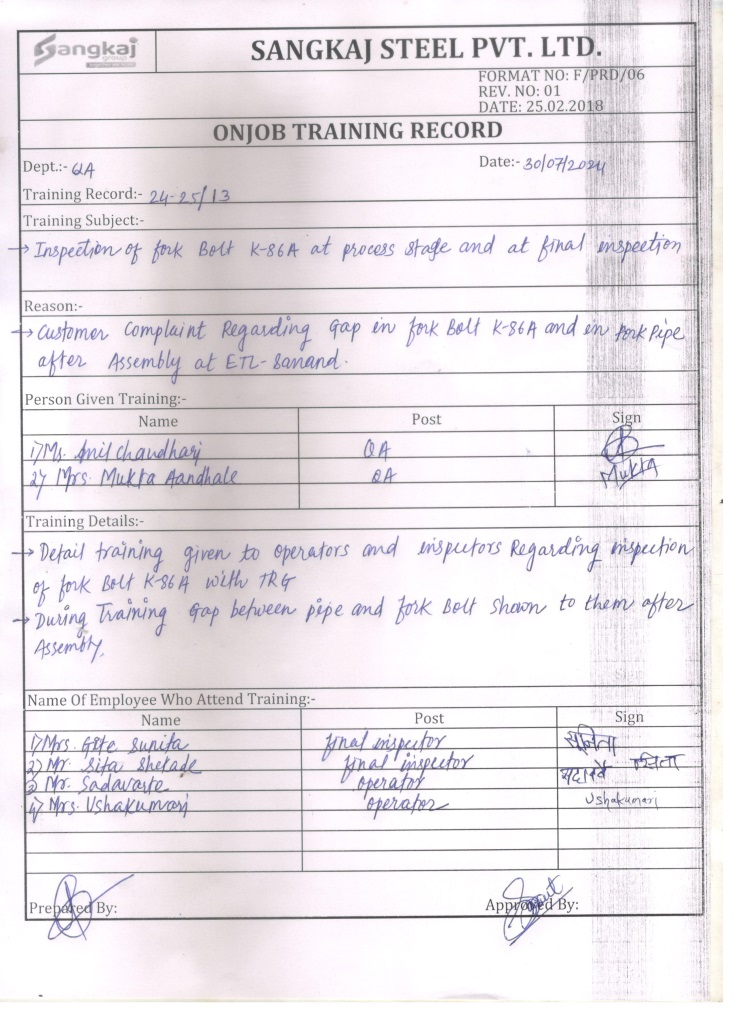 Sangkaj
group
SANGKAJ STEEL PVT. LTD.
FORMAT NO: F/PRD/06
REV. NO: 01
DATE: 25.02.2018
ONJOB TRAINING RECORD
Dept.:- QA Date:- 30/07/2024
Training Record:- 24-25/13
Training Subject:-
→ Inspection of fork Bolt K-86A at process stage and at final inspection
Reason:-
→ Customer Complaint Regarding Gap in fork Bolt K-86A and in fork Pipe
after Assembly at ETL-Sanand.
Person Given Training:-
Name Post Sign
1) Mr. Anil Chaudhari QA
2) Mrs. Mukta Aandhale QA Mukta
Training Details:-
→ Detail training given to operators and inspectors Regarding inspection
of fork Bolt K-86A with TRG
→ During Training Gap between pipe and fork Bolt shown to them after
Assembly.
Name Of Employee Who Attend Training:-
Name Post Sign
1) Mrs. Gite Sunita final inspector सुनिता
2) Mr. Sita Shelade final inspector
3) Mr. Sadavarte operator सदावर्ते
4) Mrs. Ushakumari operator Ushakumari
Prepared By: Approved By: